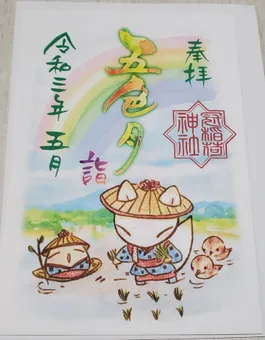 奉拝
冠稲荷
神社
五色夕詣
令和三年 五月